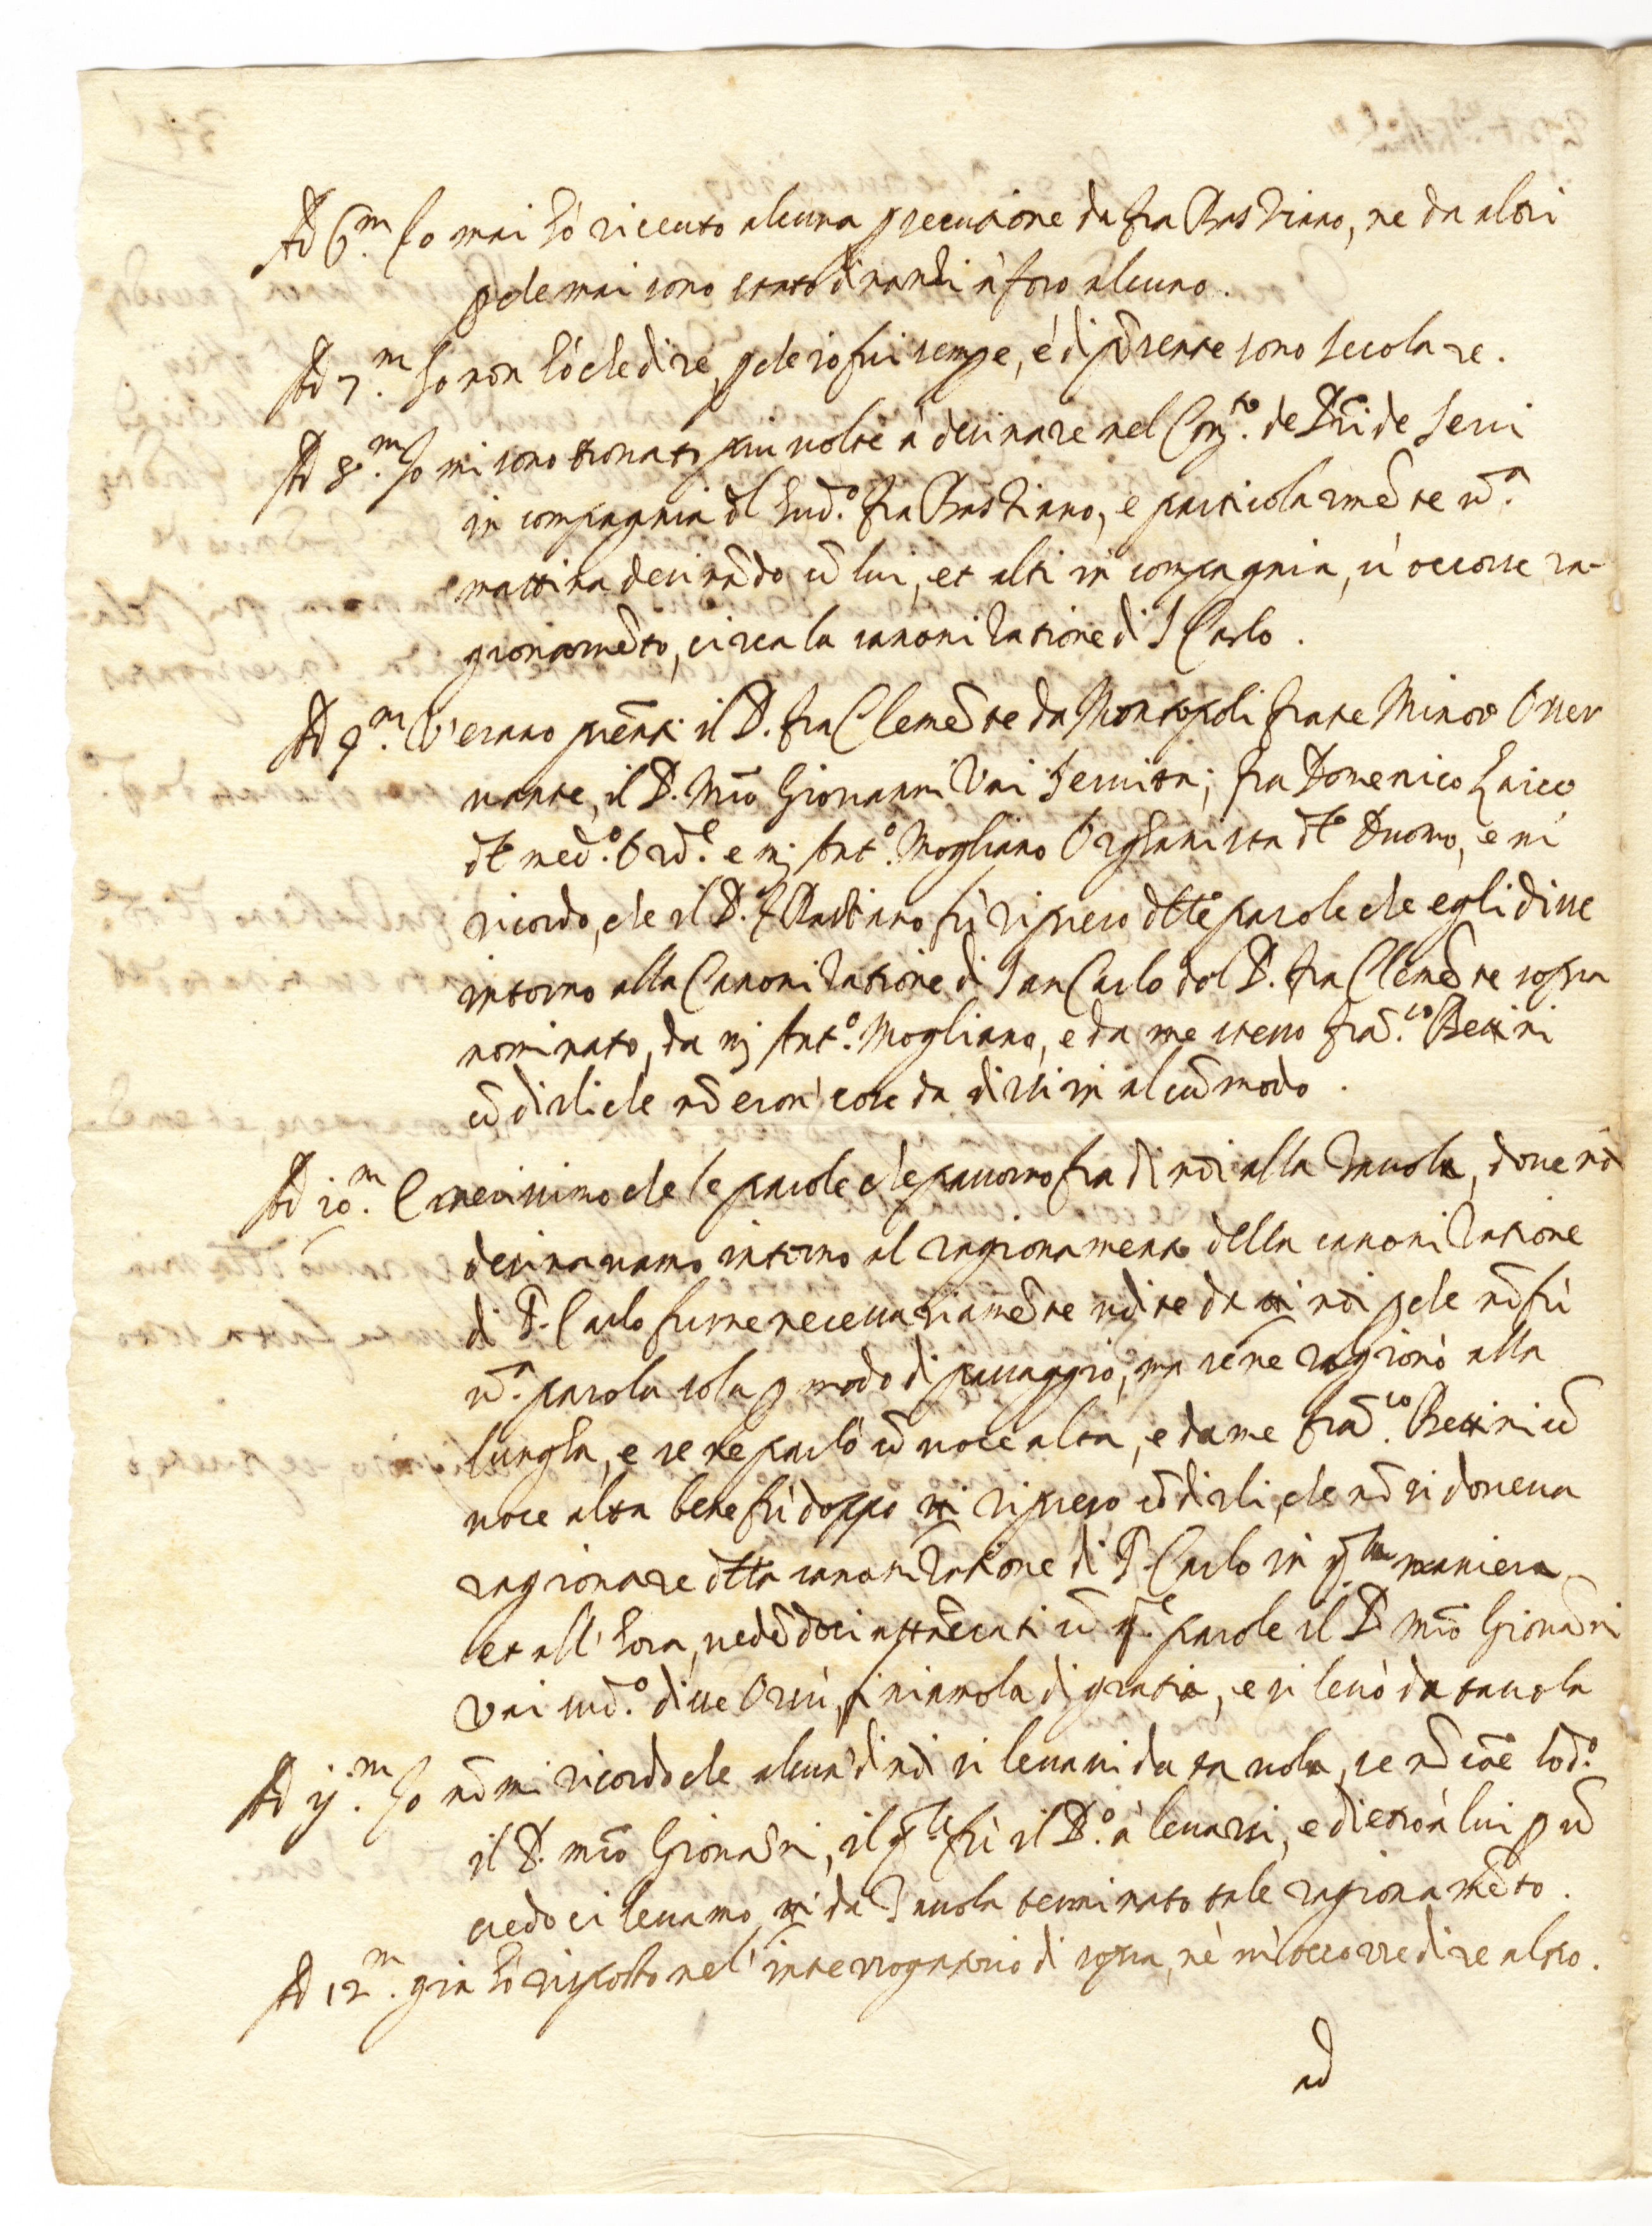 Ad 6.m Io mai hò riceuto alcuna precusione da fra Bastiano, ne da altri
p che mai sono stato dinanzi à foro alcuno.
Ad 7.m Io non hò che dire, p che io fui sempe, è di pñente sono secolare.
Ad 8.m Io mi sono trouato piu uolte à desinare nel Con.to de PPri de Serui
in compagnia dl sud.o fra Bastiano, e particolarmẽte un.a
mattina desinãdo cõ lui, et altri in compagnia, ui occorse ra-
gionamẽto, circa la canonizatione di S Carlo.
Ad 9.m V'erano pñenti il P. fra Clemẽte da Montopoli frate Minor Osser
uante, il P. Mrõ Giouanni Vai Seruita; fra Domenico Laico
dl med.o Ord.e e mi Ant.o Mogliano Orghanista dl Duomo, e mi
ricordo, che il P. f Bastiano fù ripreso dlle parole che egli disse
intorno alla Canonizatione di San Carlo dal P. fra Clemẽte sopra
nominato, da mi Ant.o Mogliano, e da me stesso Frã.co Bettini
cõ dirli che nõ eron' cose da dirsi in alcũ modo.
Ad 10.m Certissimo che le parole che passorno fra di nõi alla Tauola, doue nõi
desinauamo intorno al ragionamento della canonizatione
di S. Carlo furne necessariamẽte udite da tti nõi p che nõ fù
un.a parola sola p modo di passaggio, ma se ne ragionò alla
lungha, e se ne parlò cõ uoce alta, e da me Frã.co Bettini cõ
uoce alta bene fù doppo ripreso cõ dirli, che nõ si doueua
ragionare dlla canonizatione di S. Carlo in q.lla maniera
et all'hora, uedẽdoci attaccati cõ q.e parole il P. Mrõ Giouãni
Vai sud.o disse Orsù, finiamola di gratia, e si leuò da tauola
Ad 11.m Io nõ mi ricordo che alcun' di nõi si leuassi da tauola, se nõ cõe hò d.o
il P. mrõ Giouãni, il q.le fù il P.o à leuarsi, e dietro à lui p cõ
credo ci leuamo tti da Tauola terminato tale ragionamẽto.
Ad 12.m già hò risposto nel' interrogatorio di sopra, nè mi occorre dire altro.
ad